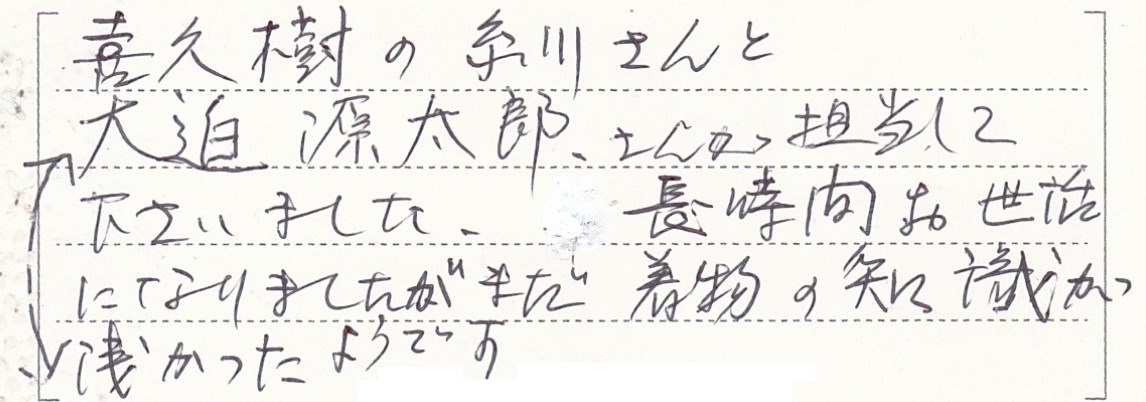 喜久樹の糸川さんと
大迫源太郎、さんが担当して
下さいました、 長時間お世話
になりましたがまだ着物の知識が
浅かったようです